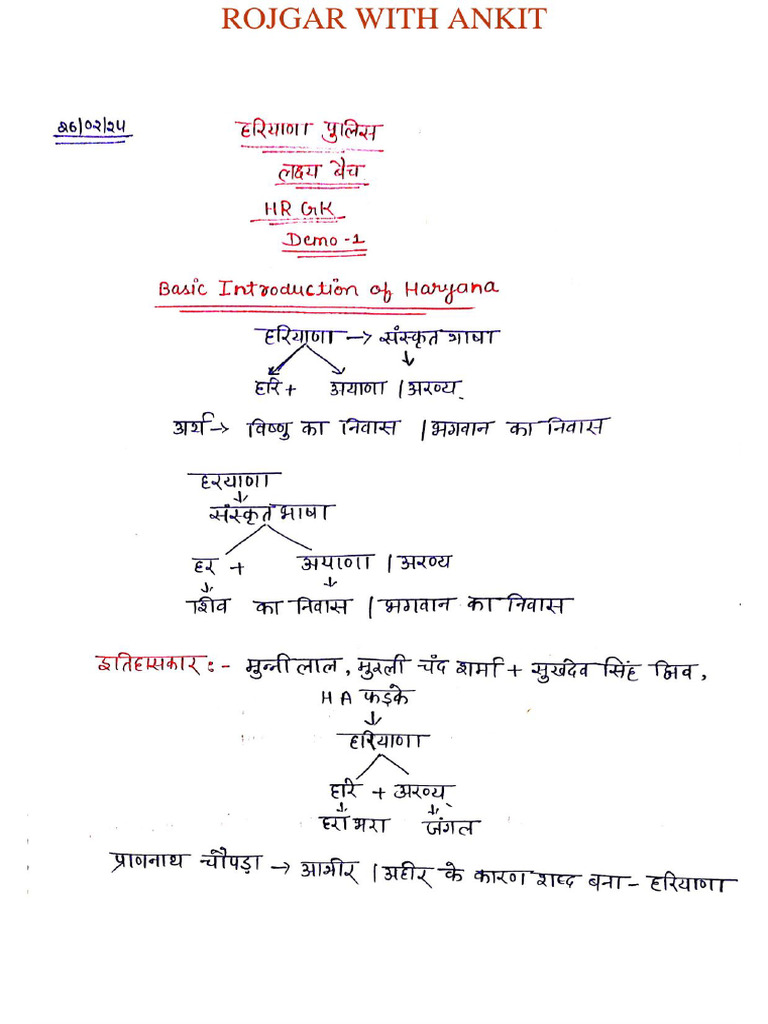 ROJGAR WITH ANKIT
26/02/24
हरियाणा पुलिस
लक्ष्य बैच
HR GK
Demo-1
Basic Introduction of Haryana
हरियाणा → संस्कृत भाषा
हरि + अयाणा / अरण्य
अर्थ → विष्णु का निवास / भगवान का निवास
हरयाणा
संस्कृत भाषा
हर + अयाणा / अरण्य
शिव का निवास / भगवान का निवास
इतिहासकार :- मुन्नीलाल, मुरली चंद शर्मा + सुखदेव सिंह
H A फड़के
हरियाणा
हरि + अरण्य
हरा भरा जंगल
प्राणनाथ चौपड़ा → आभीर / अहीर के कारण शब्द बना - हरियाणा